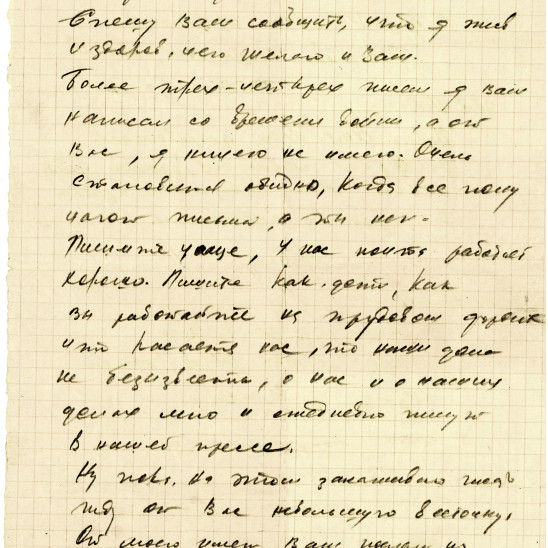 Спешу Вам сообщить, что я жив
и здоров, чего желаю и Вам.
Более трех-четырех писем я Вам
написал со времени войны, а от
Вас, я ничего не имею. Очень
становится обидно, когда все полу
чают письма, а ты нет.
Пишите чаще, у нас почта работает
хорошо. Пишите как дети, как
вы работаете на трудовом фронте
что касается нас, то наши дела
не безизвестны, о нас и о наших
делах много и ежедневно пишут
в нашей прессе.
Ну пока. На этом заканчиваю писать
жду от Вас небольшую весточку.
От моего имени Вам